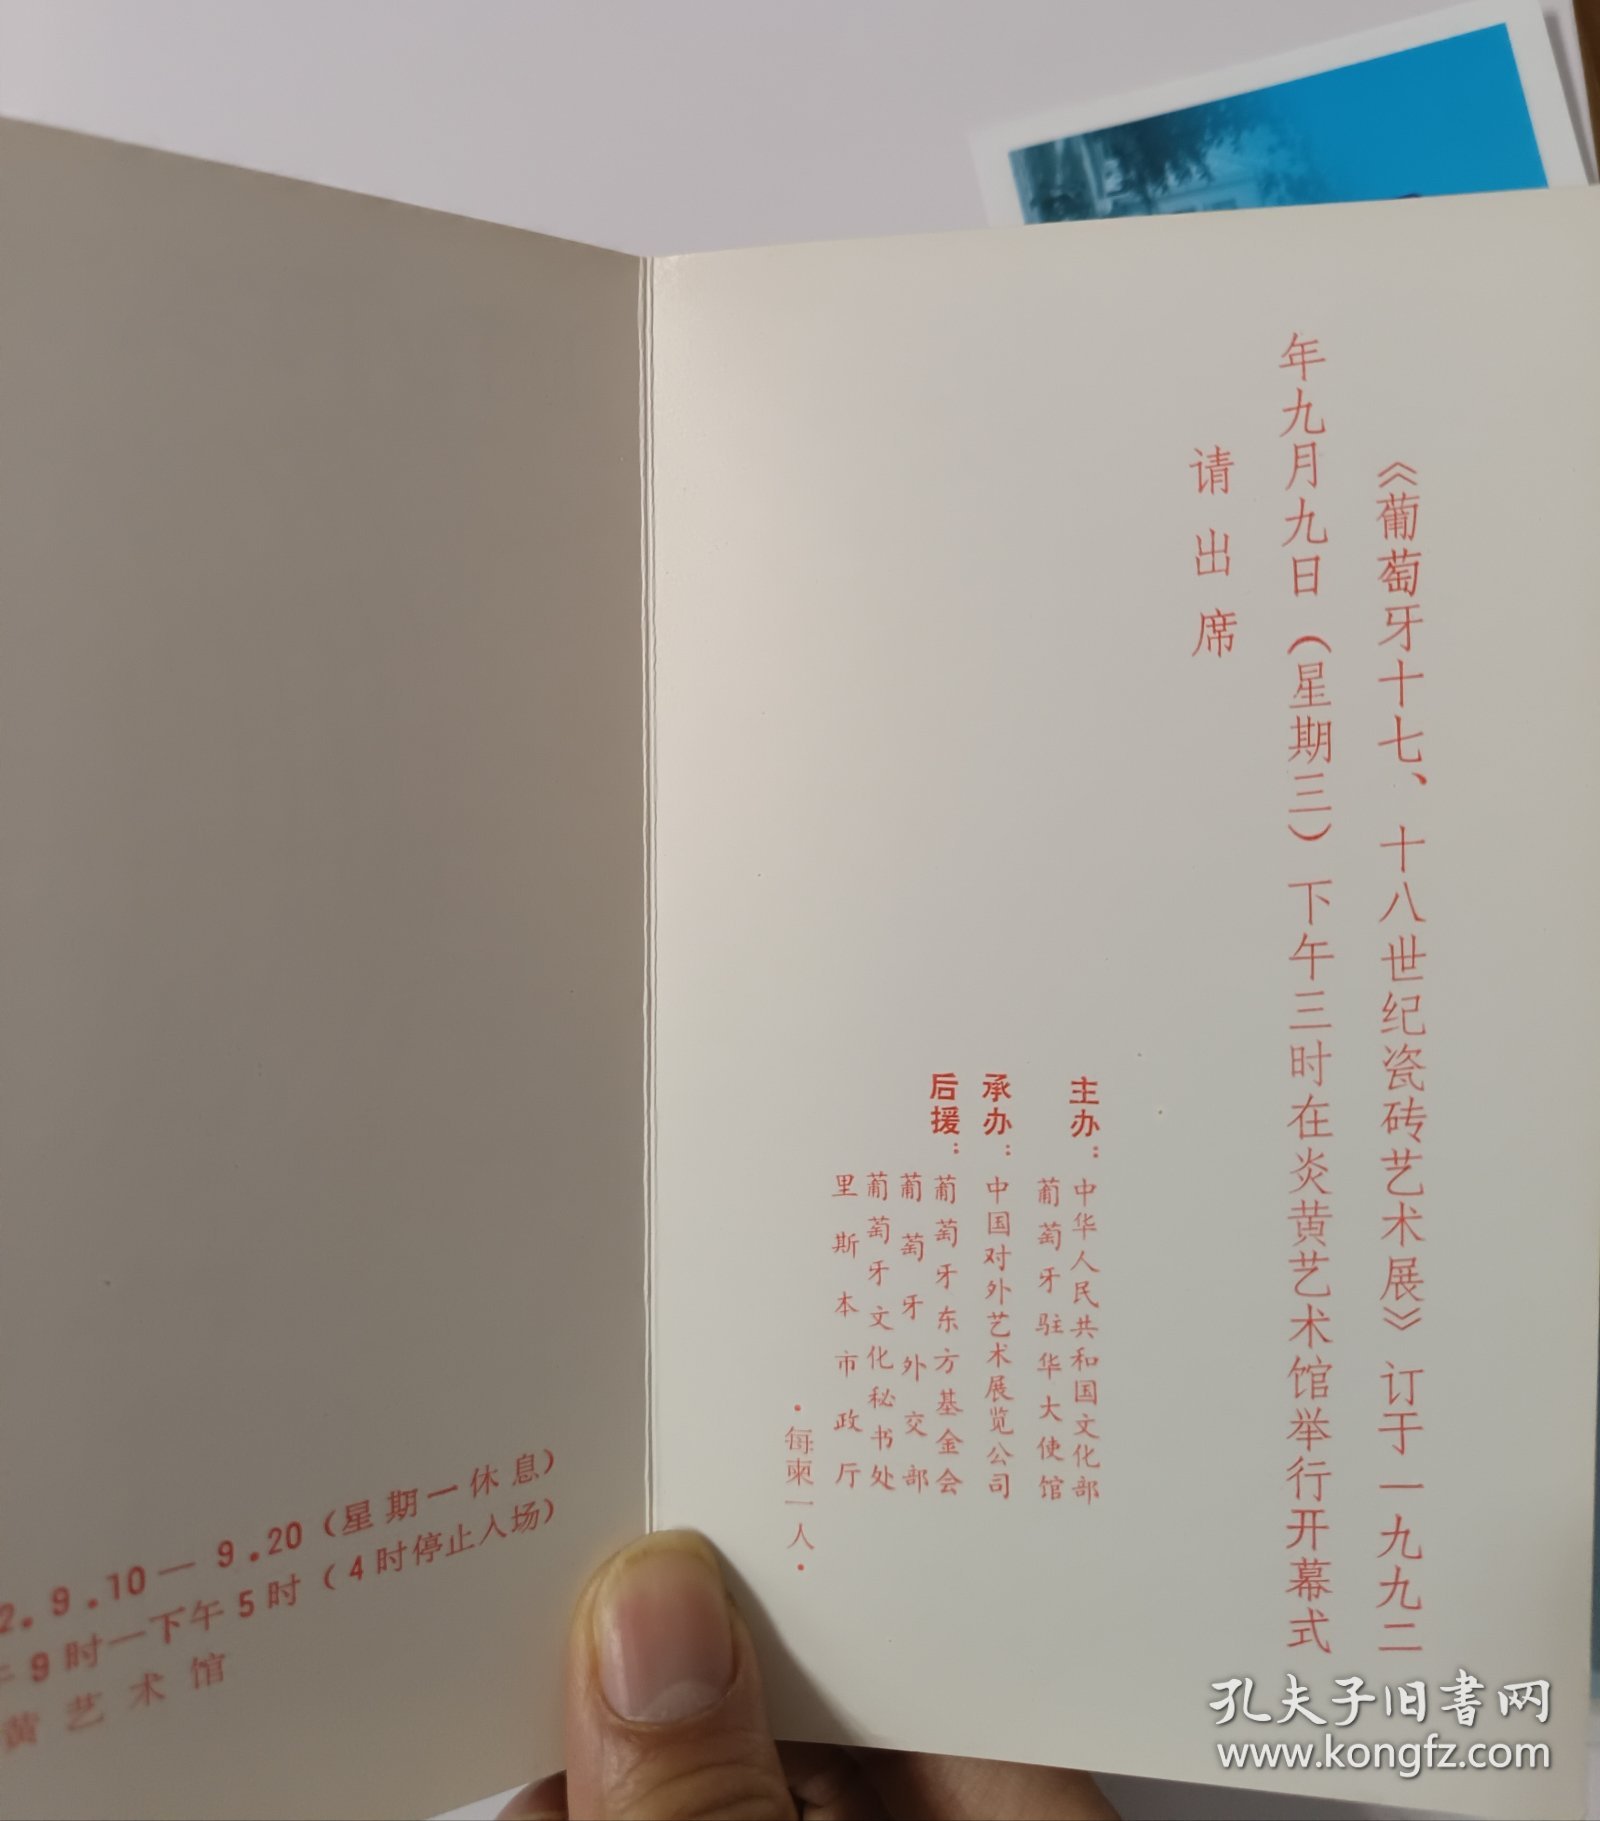 《葡萄牙十七、十八世纪瓷砖艺术展》订于一九九二
年九月九日（星期三）下午三时在炎黄艺术馆举行开幕式
请出席
主办：中华人民共和国文化部
葡萄牙驻华大使馆
承办：中国对外艺术展览公司
后援：葡萄牙东方基金会
葡萄牙外交部
葡萄牙文化秘书处
里斯本市政厅
·每柬一人·
2.9.10—9.20（星期一休息）
午9时—下午5时（4时停止入场）
黄艺术馆
孔夫子旧书网
www.kongfz.com